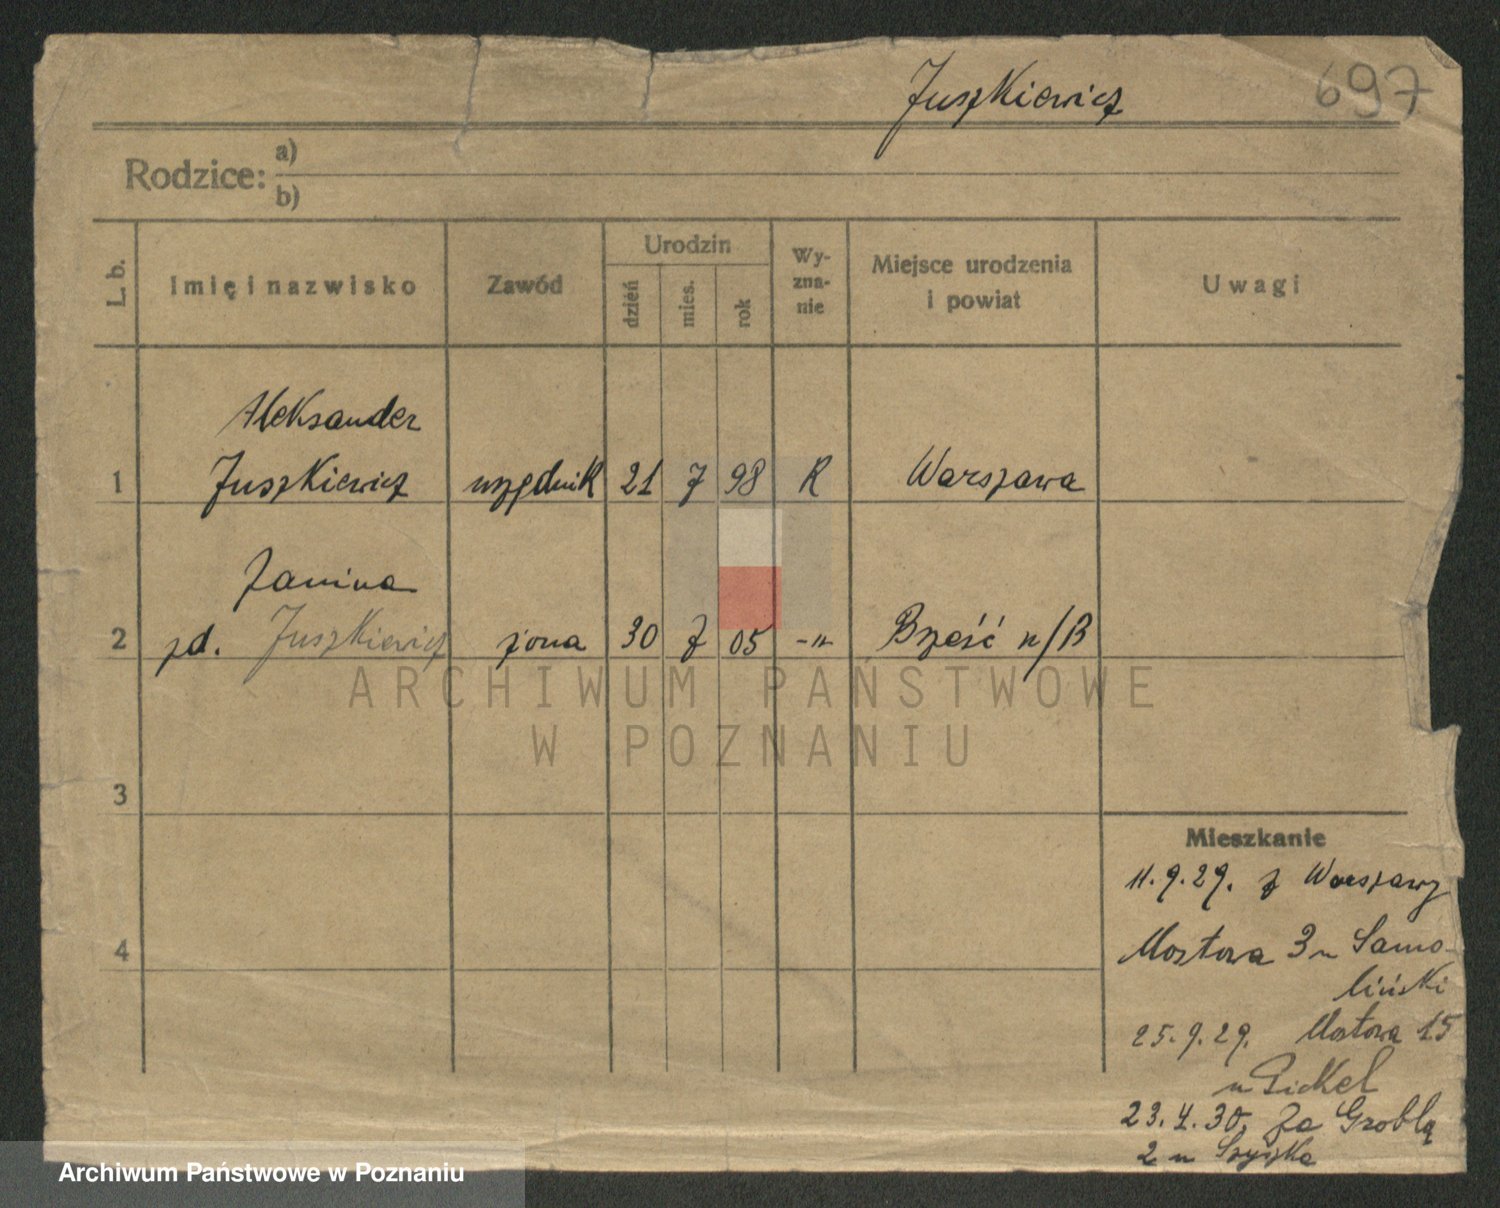 Juszkiewicz 697
Rodzice: a)
b)
L. b. Imię i nazwisko Zawód Urodzin dzień mies. rok Wy-zna-nie Miejsce urodzenia i powiat Uwagi
Aleksander
1 Juszkiewicz urzędnik 21 7 98 R Warszawa
Janina
2 zd. Juszkiewicz żona 30 7 05 -"- Brześć n/B
ARCHIWUM PAŃSTWOWE
W POZNANIU
3
Mieszkanie
11.9.29. z Warszawy
4 Mostowa 3 u Samo-
liński
25.9.29. Mostowa 15
u Pickel
23.4.30. Za Groblą
2 u Szyszka
Archiwum Państwowe w Poznaniu